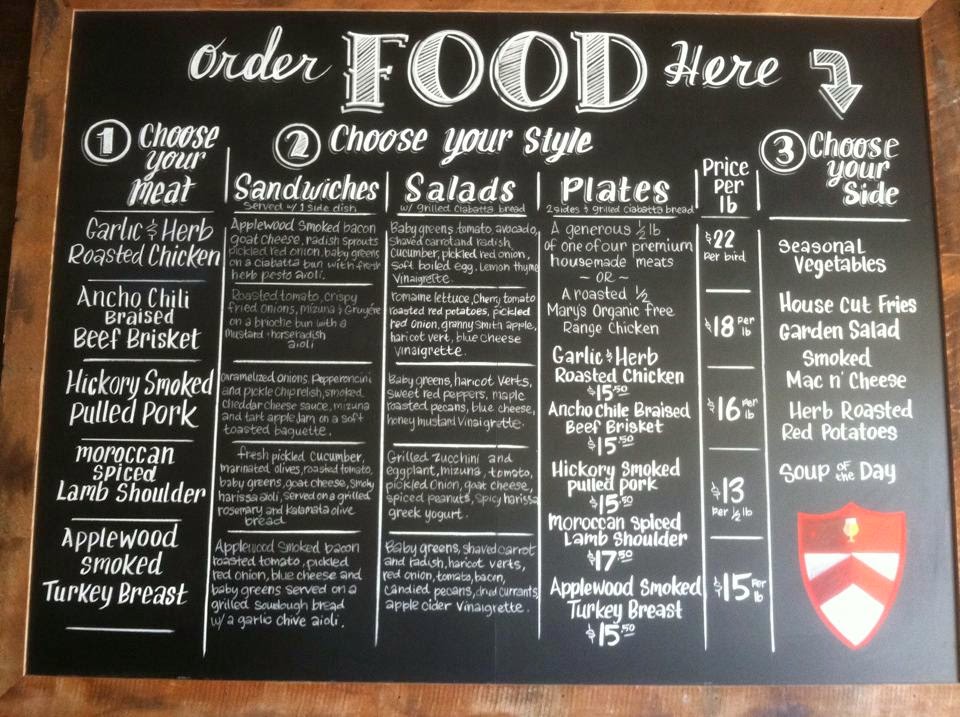 Order FOOD Here
1 Choose
your
meat
Garlic & Herb
Roasted Chicken
Ancho Chili
Braised
Beef Brisket
Hickory Smoked
Pulled Pork
moroccan
Spiced
Lamb Shoulder
Applewood
smoked
Turkey Breast
2 Choose your Style
Sandwiches
Served w/ 1 side dish
Applewood Smoked bacon
goat cheese, radish sprouts
pickled red onion, baby greens
on a Ciabatta bun with fresh
herb pesto aioli.
Roasted tomato, crispy
fried onions, mizuna & Gruyére
on a brioche bun with a
mustard-horseradish
aioli
Caramelized onions, Pepperoncini
and pickle chip relish, smoked
cheddar cheese sauce, mizuna
and tart apple Jam on a soft
toasted baguette.
fresh pickled cucumber,
marinated olives, roasted tomato,
baby greens, goat cheese, smoky
harissa aioli, served on a grilled
rosemary and kalamata olive
bread
Applewood Smoked bacon
roasted tomato, pickled
red onion, blue cheese and
baby greens served on a
grilled sourdough bread
w/ a garlic chive aioli.
Salads
w/ grilled Ciabatta bread
Baby greens, tomato, avocado,
shaved carrot and radish,
Cucumber, pickled red onion,
soft boiled egg, Lemon thyme
Vinaigrette.
romaine lettuce, Cherry tomato
roasted red potatoes, pickled
red onion, granny smith apple,
haricot vert, blue cheese
vinaigrette.
Baby greens, haricot verts,
sweet red peppers, maple
roasted pecans, blue cheese,
honey mustard Vinaigrette.
Grilled zucchini and
eggplant, mizuna, tomato,
pickled onion, goat cheese,
spiced peanuts, spicy harissa
greek yogurt.
Baby greens, shaved carrot
and radish, haricot verts,
red onion, tomato, bacon,
candied pecans, dried currants
apple cider vinaigrette.
Plates
2 sides & grilled ciabatta bread
A generous 1/2 lb
of one of our premium
housemade meats
~ OR ~
A roasted 1/2
Mary's Organic free
Range Chicken
Garlic & Herb
Roasted Chicken
$15.50
Ancho Chile Braised
Beef Brisket
$15.50
Hickory Smoked
Pulled Pork
$15.50
Moroccan Spiced
Lamb Shoulder
$17.50
Applewood Smoked
Turkey Breast
$15.50
Price
Per
lb
$22
Per bird
$18 Per lb
$16 Per lb
$13
Per 1/2 lb
$15 Per lb
3 Choose
your
Side
Seasonal
Vegetables
House Cut Fries
Garden Salad
Smoked
Mac n' Cheese
Herb Roasted
Red Potatoes
Soup of the Day